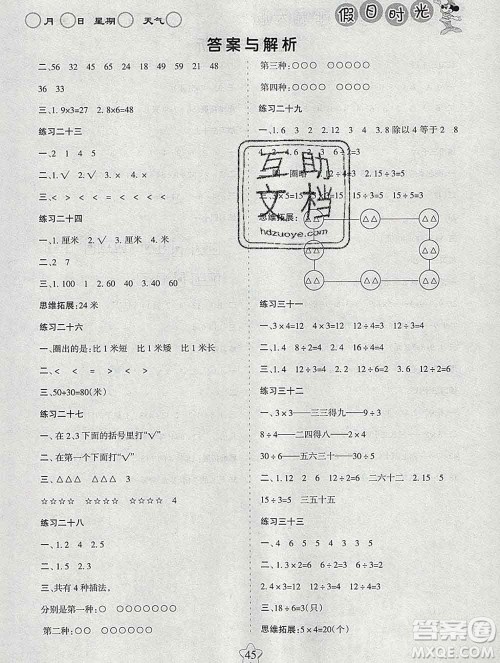 月 日 星期 天气
假日时光
答案与解析
二、56 32 45 10 24 21 29 21 48
36 33
三、1. 9×3=27 2. 8×6=48
练习二十三
一、2 1 4 5
二、1. √ 2. √ 3. √
三、< > < >
练习二十四
一、1. 厘米 2. 厘米 3. 米
二、2 7
三、1. √ 2.
四、> < > < > >
思维拓展:24米
练习二十六
一、圈出的是:比1米短 比1米短 比1米长
二、< < > = > <
三、50+30=80(米)
练习二十七
一、在2、3下面的括号里打“√”
二、在第一个下面打“√”
三、△△△ △△△ △△△
☆☆☆☆ ☆☆☆☆ ☆☆☆☆ 4
练习二十八
一、1. 2 4 2. 5
二、1. √ 2. 3. √
三、共有4种插法,
分别是第一种:○ ○○○○○○○
第二种:○○ ○○○○○○
第三种:○○○ ○○○○○
第四种:○○○○ ○○○○
练习二十九
一、1. 6 3 2. 3 4 3. 8 除以 4 等于 2 8
÷4=2 2. 6 12÷6=2 6÷2=3
圈一圈略
5=15 15÷5=3
思维拓展:
△△ △△ △△
△△ △△
△△ △△ △△
互助文档
hdzuoye.com
练习三十一
一、3×4=12 12÷4=3 12÷3=4
二、1. 5×3=15 15÷3=5 2. 16÷8=2
三、24÷4=6
一、3÷3=1 —— 三三得九 —— 9÷3
8÷4=2 —— 二四得八 —— 8÷2
30÷6=5 —— 五六三十 —— 30÷5
二、1. 2. √ 3. 4. √ 5.
三、1. 12÷6=2 二六十二 2. 36÷6=6 六六三十六
15÷3=5 三五十五
练习三十三
一、4 24 4 3 4 1 6 5 6
二、> > < = < =
三、18÷6=3(只)
思维拓展:5×4=20(个)
45
答案圈